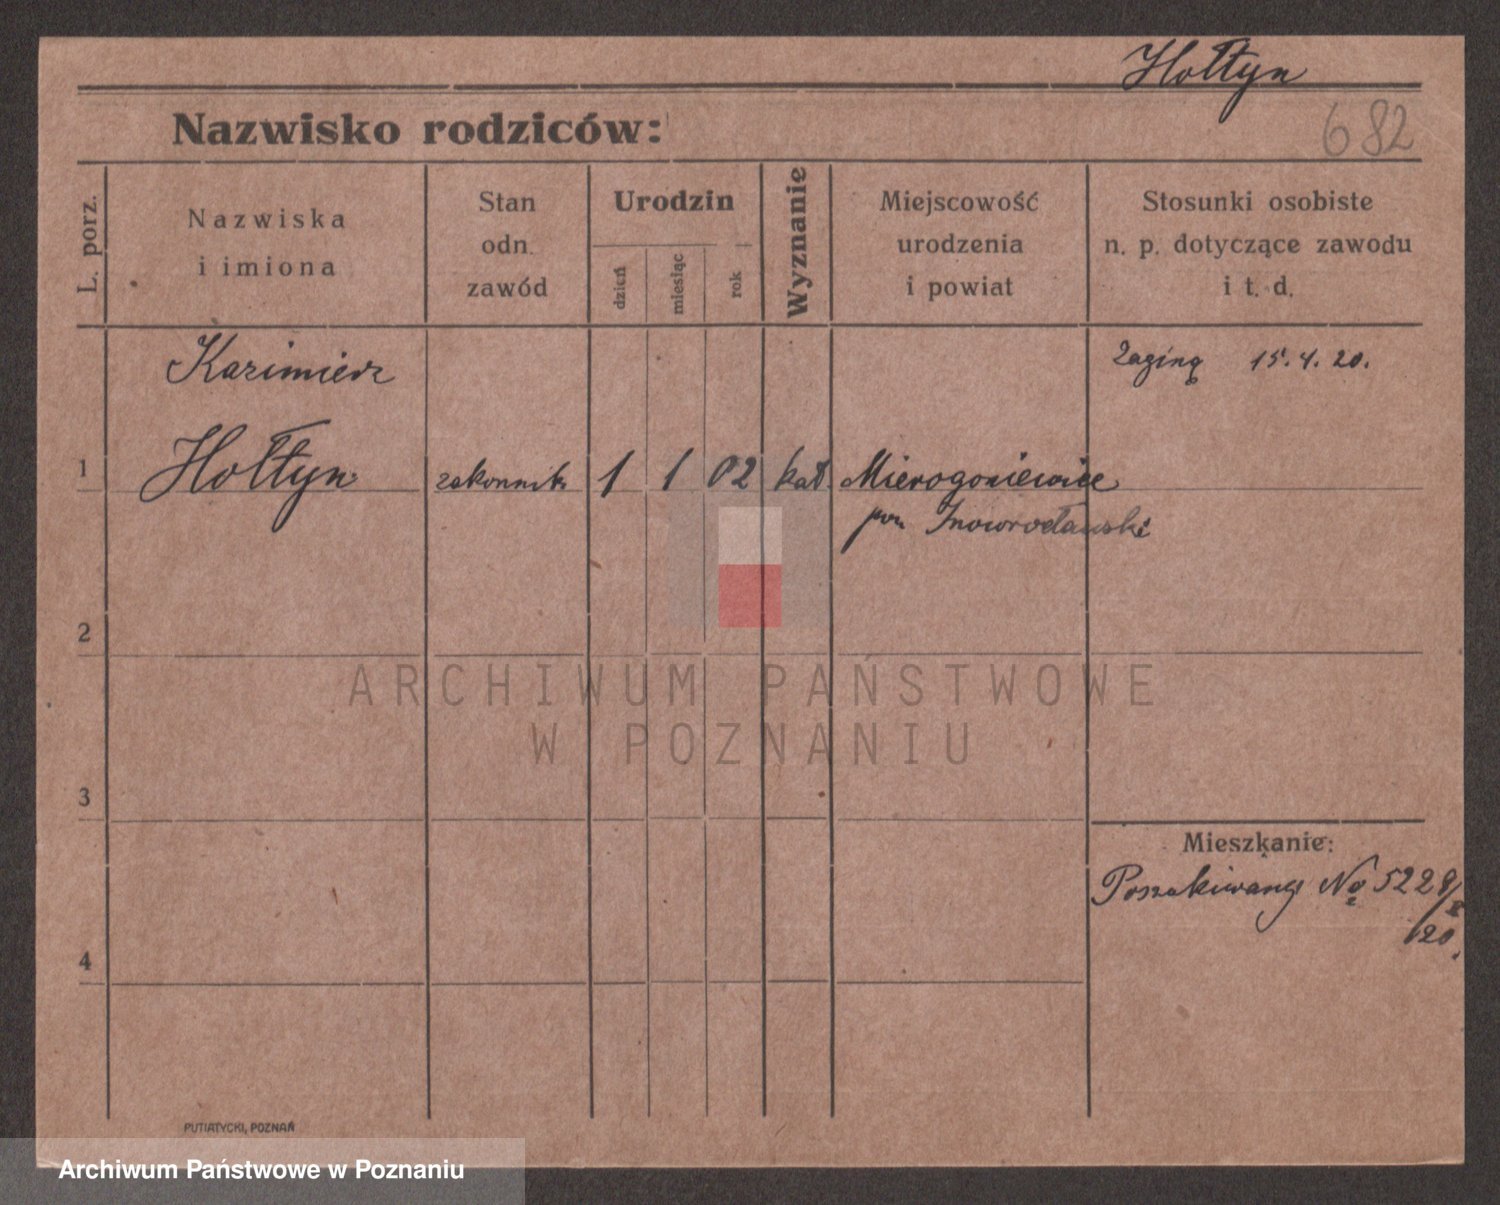 Hołtyn
Nazwisko rodziców:
682
L. porz.
Nazwiska
i imiona
Stan
odn.
zawód
Urodzin
dzień
miesiąc
rok
Wyznanie
Miejscowość
urodzenia
i powiat
Stosunki osobiste
n. p. dotyczące zawodu
i t. d.
Kazimierz
Zaginą 15.4.20.
1 Hołtyn zakonnik 1 1 02 kat. Mierogoniewice
pow Inowrocławski
2
ARCHIWUM PAŃSTWOWE
W POZNANIU
3
Mieszkanie:
Poszukiwany No 5228/X
/20.
4
PUTIATYCKI, POZNAŃ
Archiwum Państwowe w Poznaniu